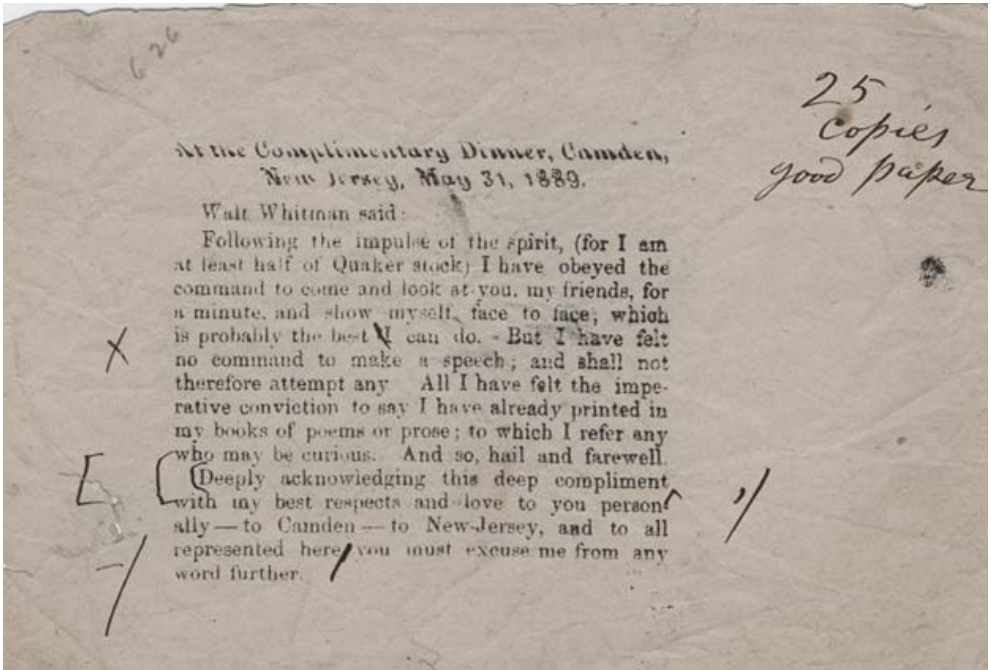 626
25
copies
good paper
At the Complimentary Dinner, Camden,
New Jersey, May 31, 1889.
Walt Whitman said:
Following the impulse of the spirit, (for I am
at least half of Quaker stock) I have obeyed the
command to come and look at you, my friends, for
a minute, and show myself, face to face; which
is probably the best I can do. - But I have felt
no command to make a speech; and shall not
therefore attempt any All I have felt the impe-
rative conviction to say I have already printed in
my books of poems or prose; to which I refer any
who may be curious. And so, hail and farewell.
Deeply acknowledging this deep compliment
with my best respects and love to you person
ally — to Camden — to New-Jersey, and to all
represented here you must excuse me from any
word further.